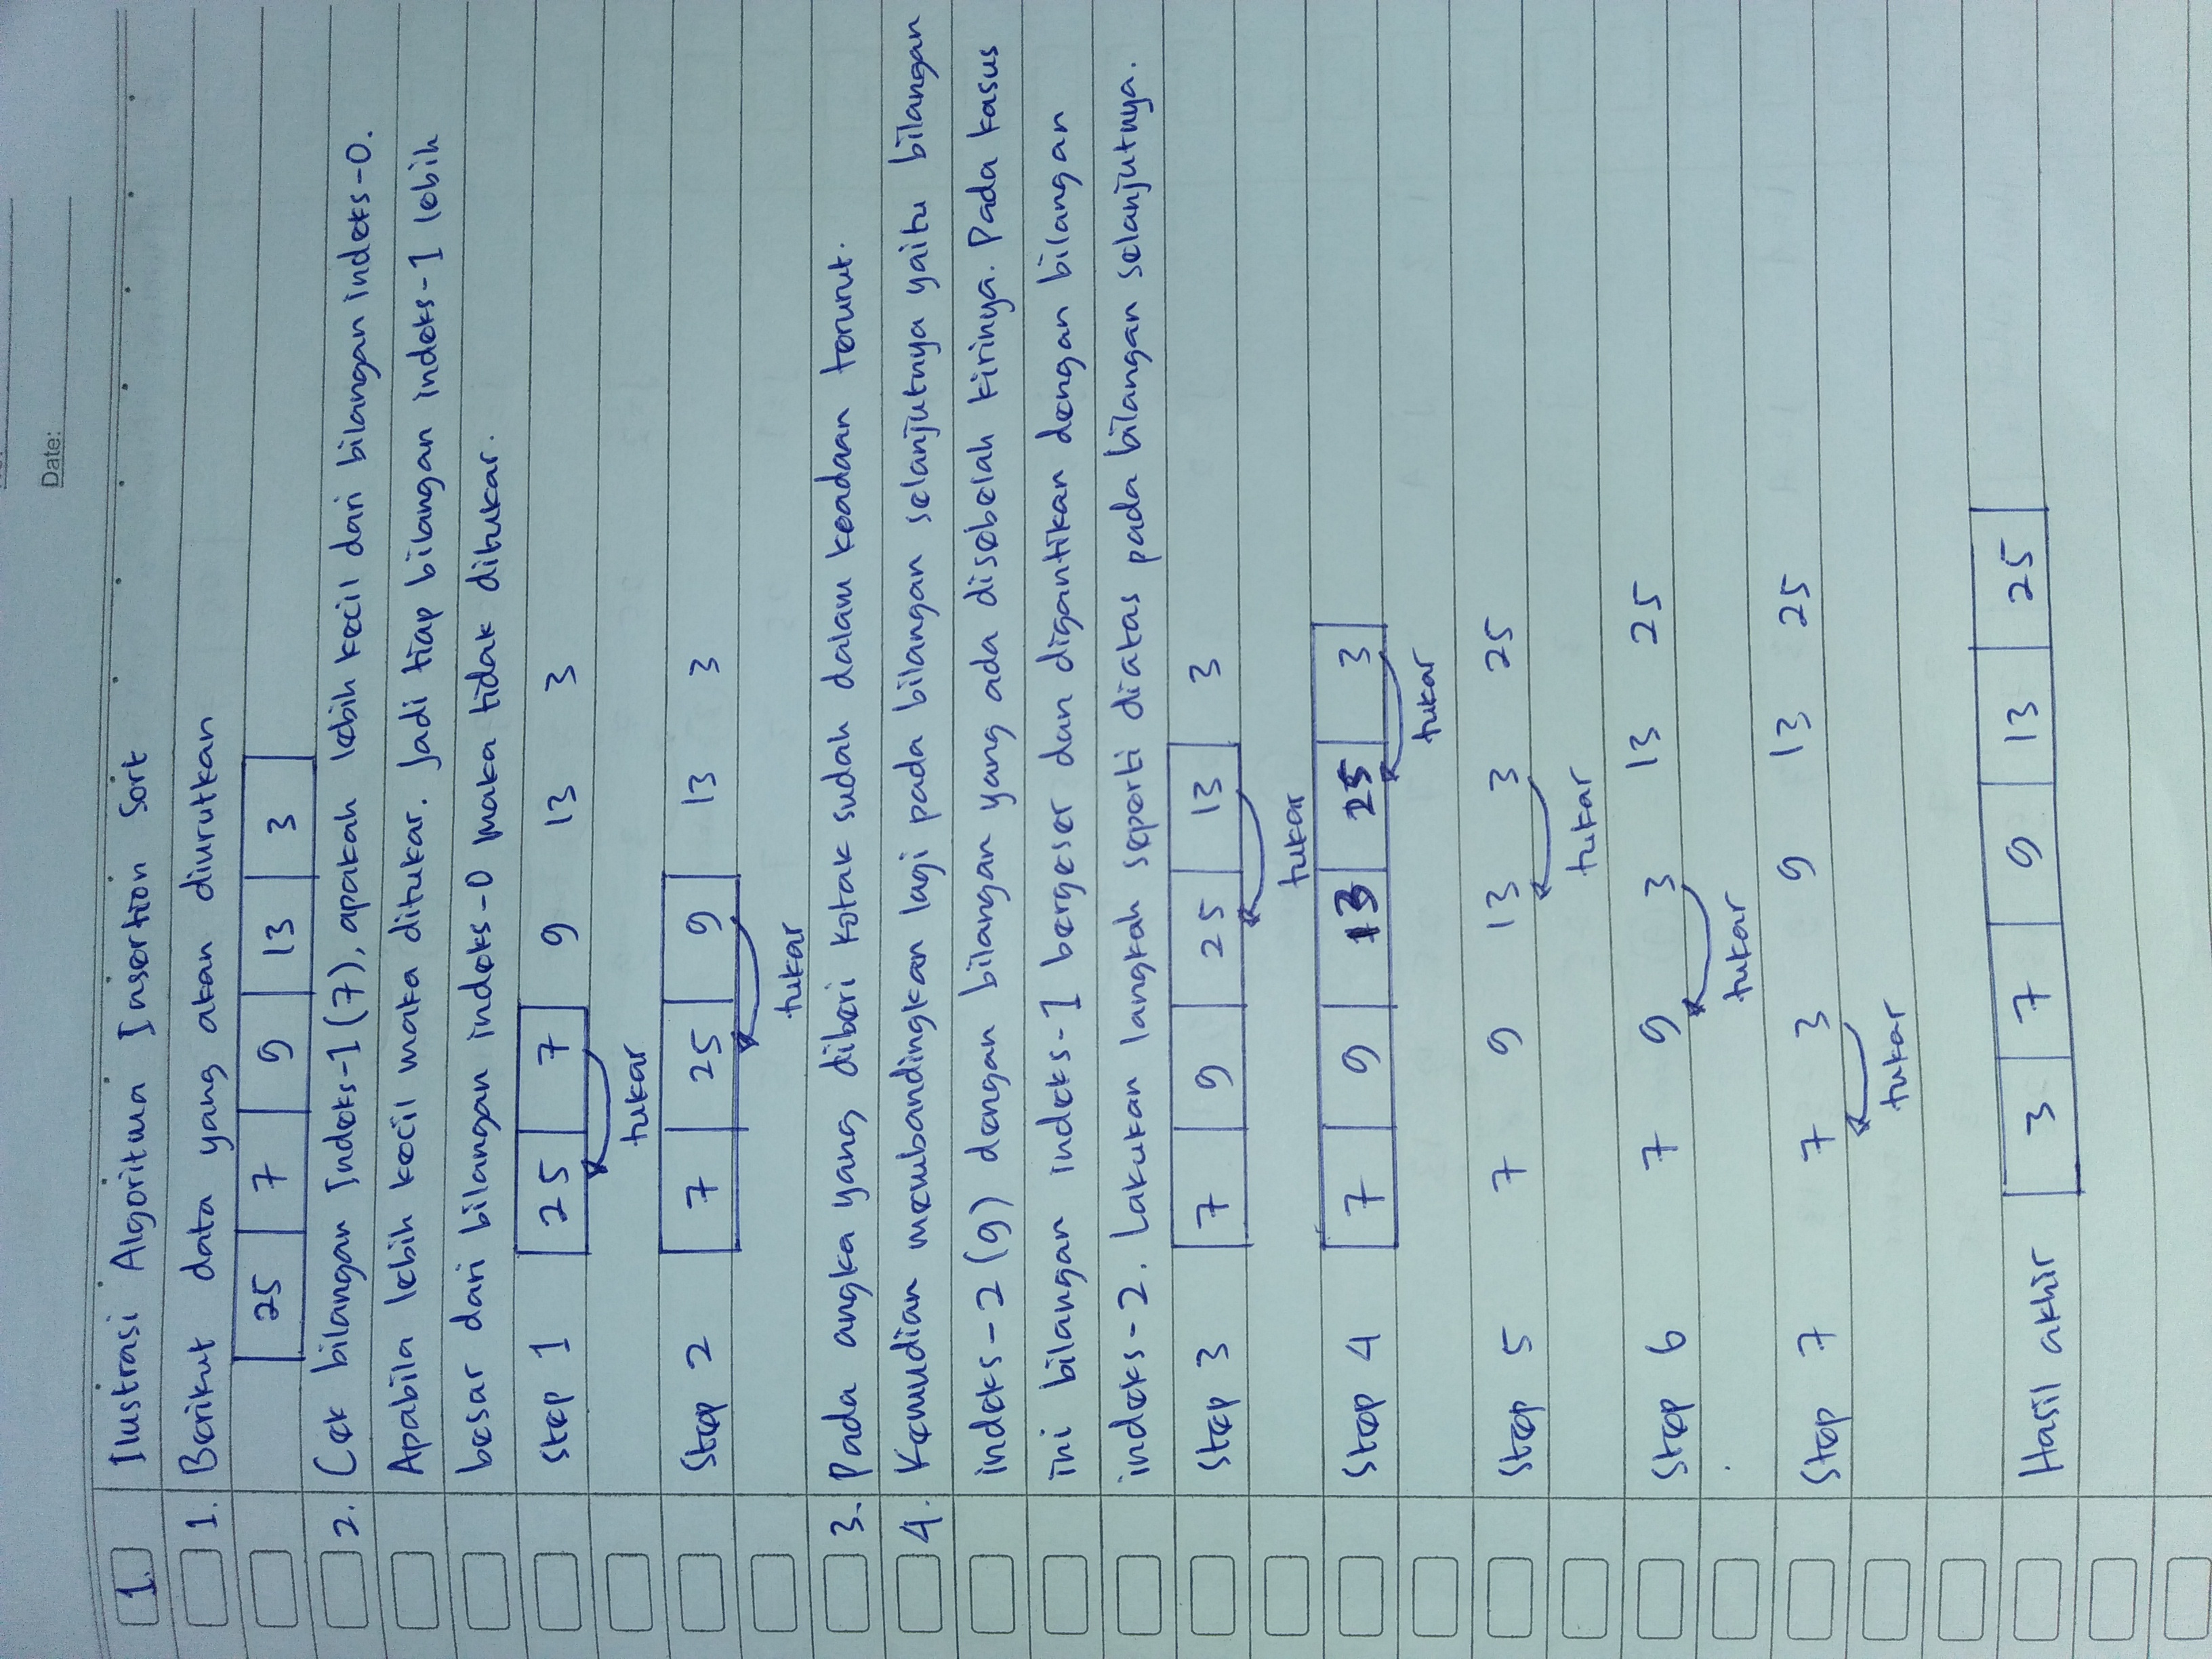 Date:
1. Ilustrasi Algoritma Insertion Sort
1. Berikut data yang akan diurutkan
25 7 9 13 3
2. Cek bilangan Indeks-1 (7), apakah lebih kecil dari bilangan indeks-0.
Apabila lebih kecil maka ditukar. Jadi tiap bilangan indeks-1 lebih
besar dari bilangan indeks-0 maka tidak ditukar.
Step 1 25 7 9 13 3
tukar
Step 2 7 25 9 13 3
tukar
3. Pada angka yang diberi kotak sudah dalam keadaan terurut.
4. Kemudian membandingkan lagi pada bilangan selanjutnya yaitu bilangan
indeks-2 (9) dengan bilangan yang ada disebelah kirinya. Pada kasus
ini bilangan indeks-1 bergeser dan digantikan dengan bilangan
indeks-2. Lakukan langkah seperti diatas pada bilangan selanjutnya.
Step 3 7 9 25 13 3
tukar
Step 4 7 9 13 25 3
tukar
Step 5 7 9 13 3 25
tukar
Step 6 7 9 3 13 25
tukar
Step 7 7 3 9 13 25
tukar
Hasil akhir 3 7 9 13 25